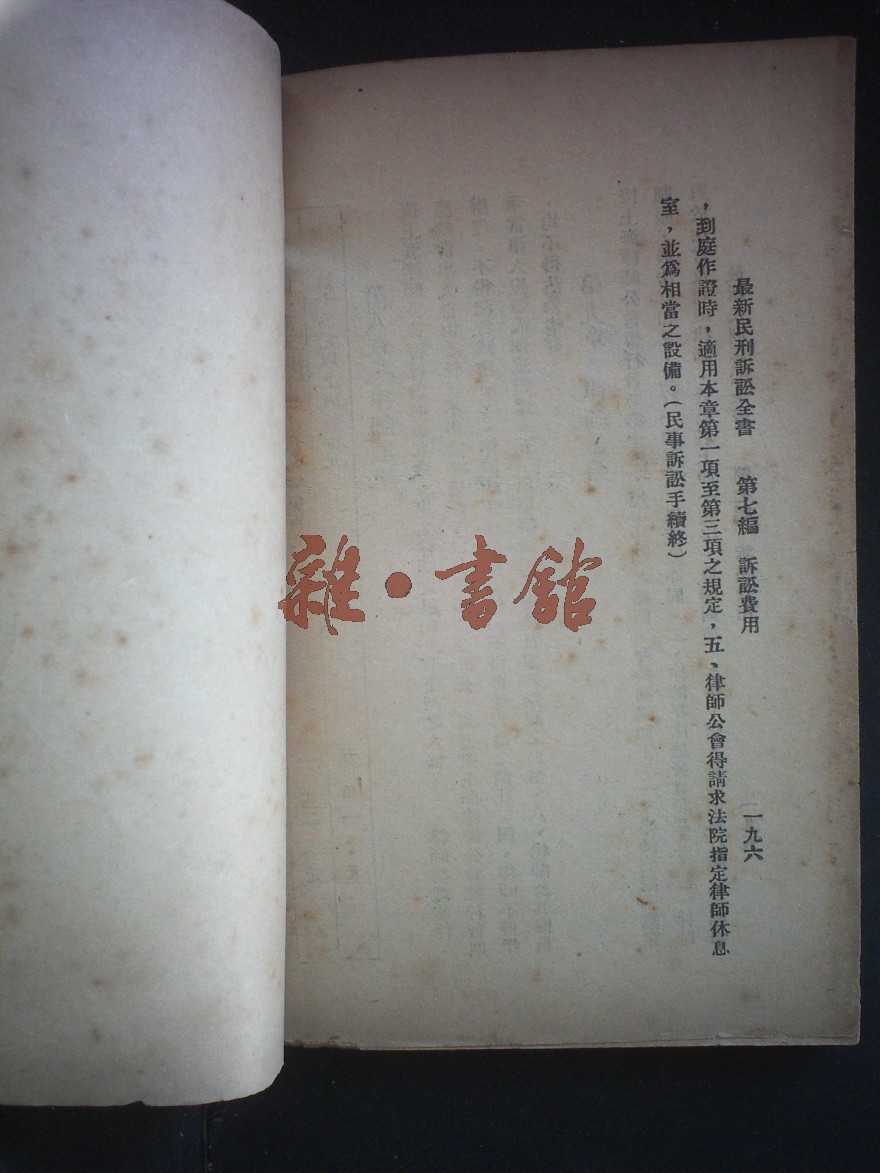 最新民刑訴訟全書 第七編 訴訟費用 一九六
，到庭作證時，適用本章第一項至第三項之規定，五、律師公會得請求法院指定律師休息
室，並爲相當之設備。（民事訴訟手續終）
雜·書館